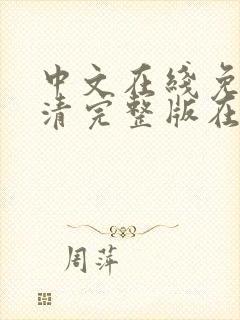 中文在线免
清完整版在
周萍